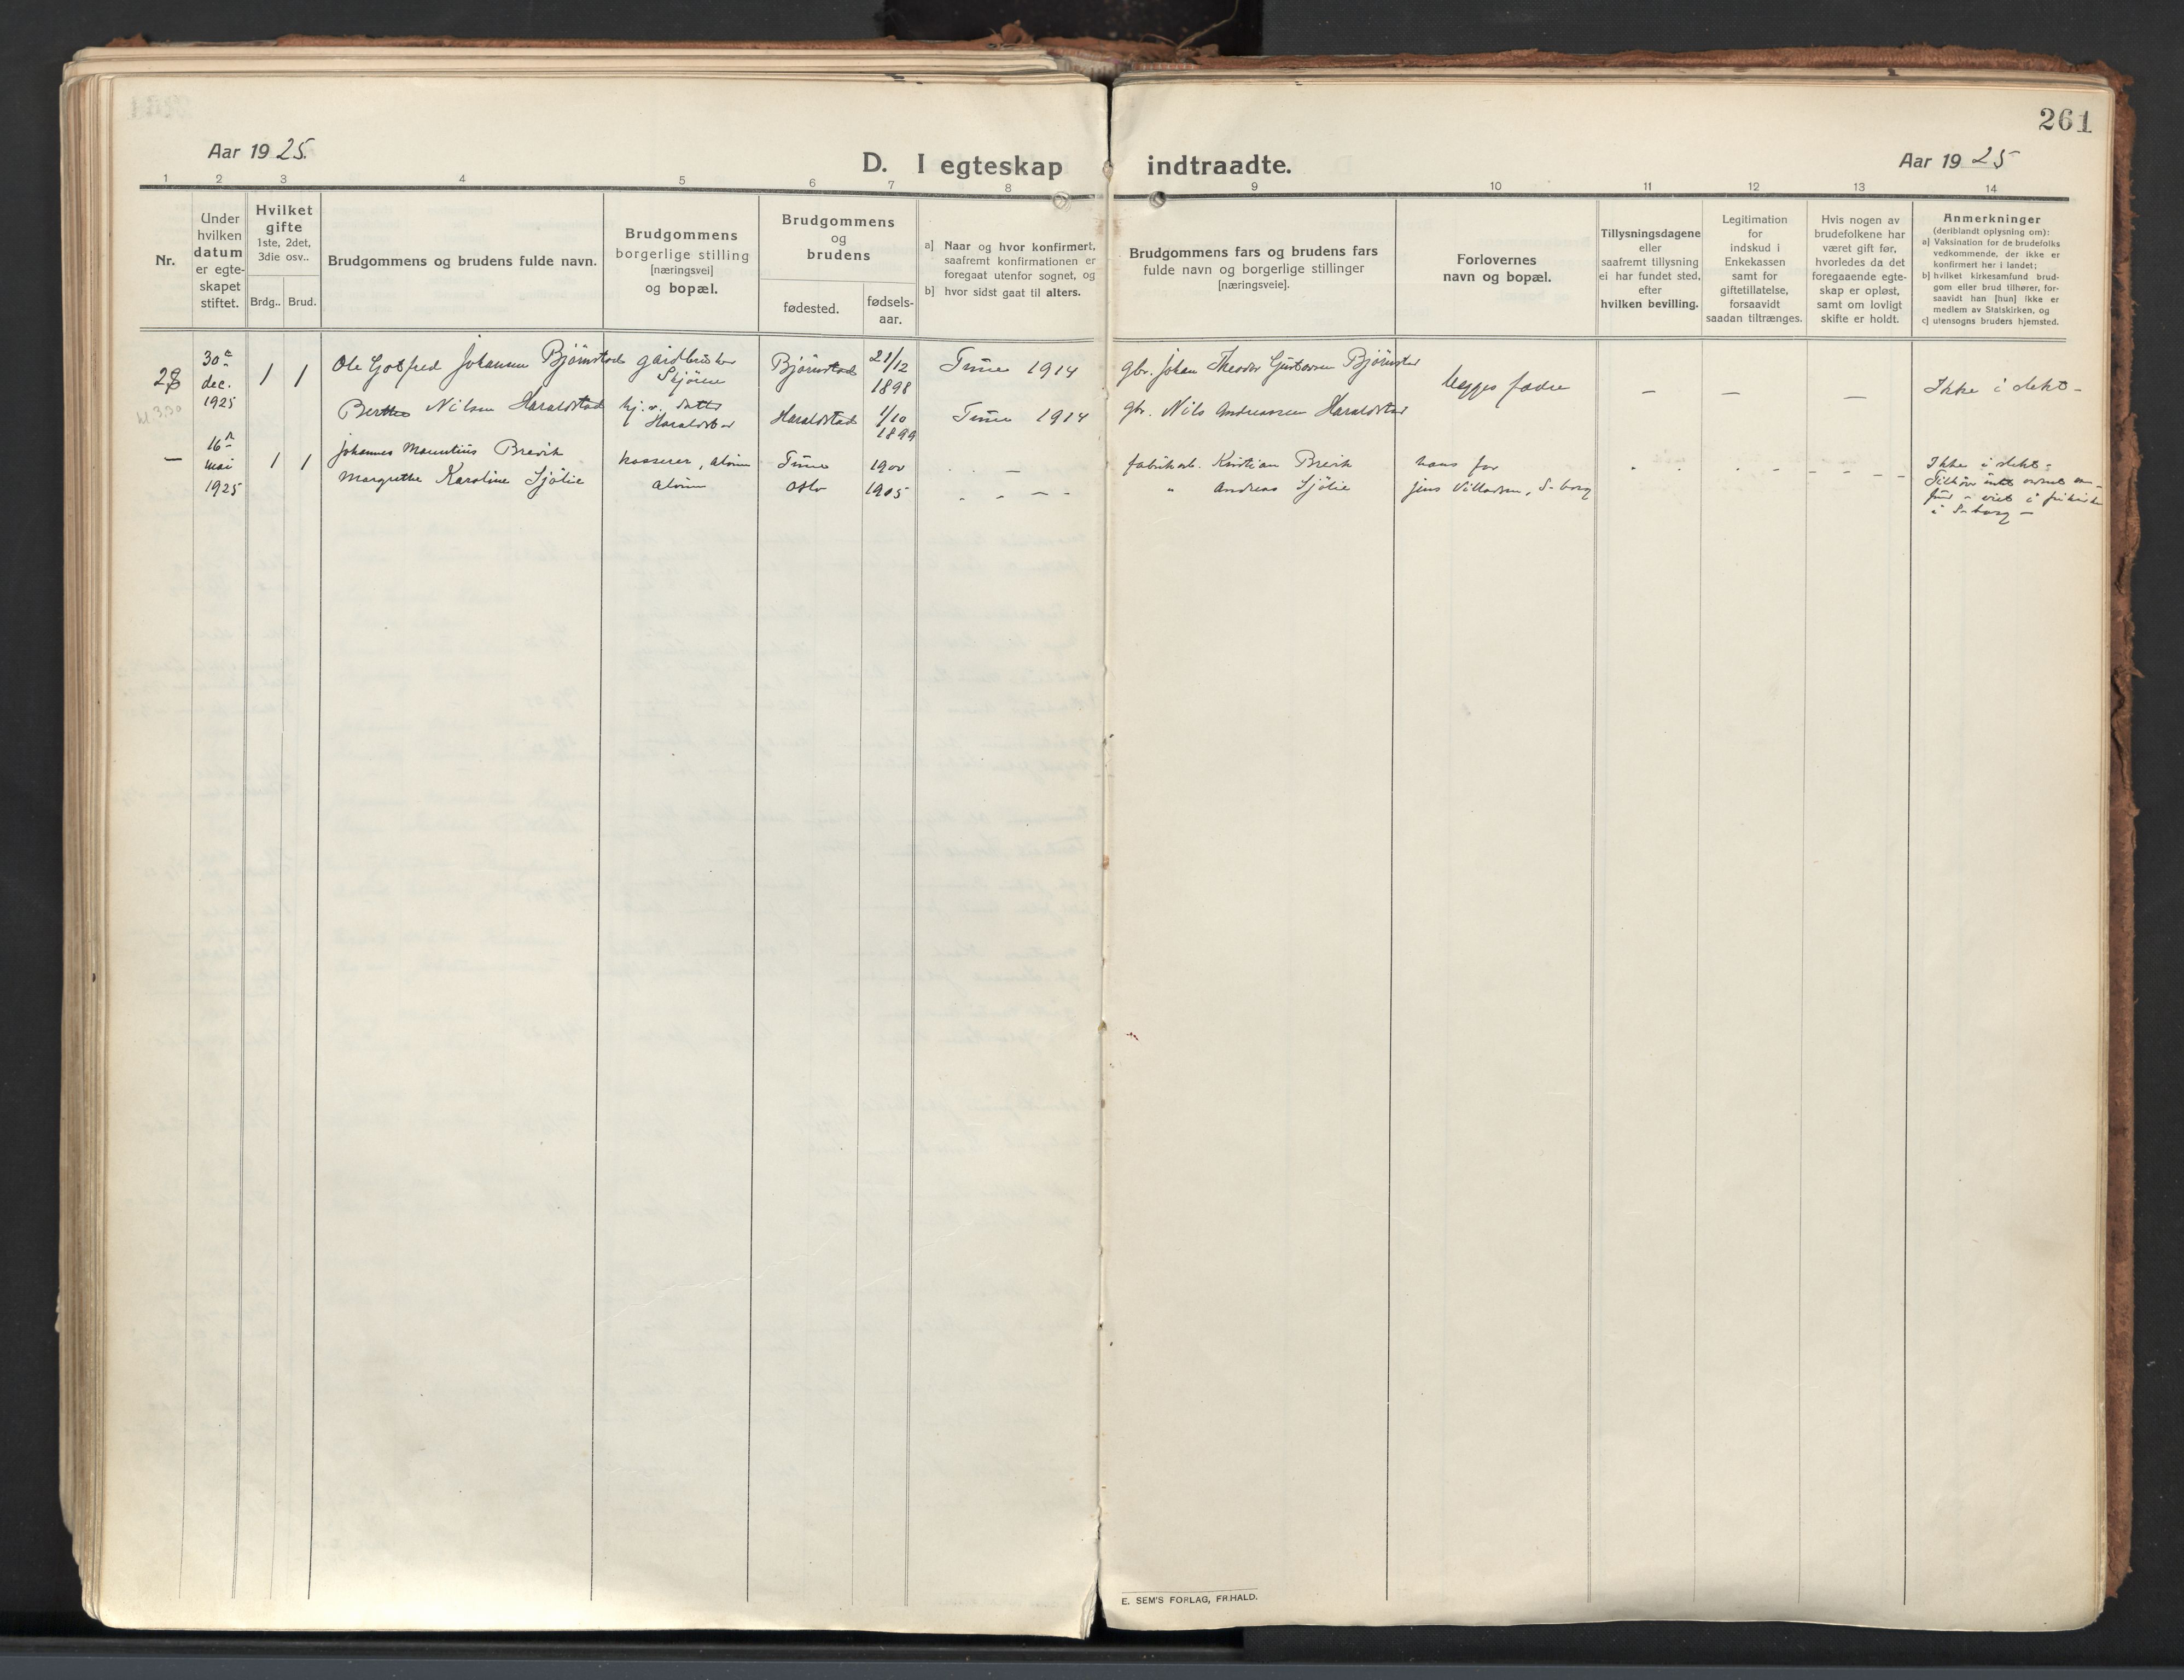 261
Aar 1925.
D. I egteskap indtraadte.
Aar 1925
1 2 3 4 5 6 7 8 9 10 11 12 13 14
Nr.
Under
hvilken
datum
er egte-
skapet
stiftet.
Hvilket
gifte
1ste, 2det,
3die osv..
Brdg.. Brud.
Brudgommens og brudens fulde navn.
Brudgommens
borgerlige stilling
[næringsvei]
og bopæl.
Brudgommens
og
brudens
fødested.
fødsels-
aar.
a] Naar og hvor konfirmert,
saafremt konfirmationen er
foregaat utenfor sognet, og
b] hvor sidst gaat til alters.
Brudgommens fars og brudens fars
fulde navn og borgerlige stillinger
[næringsveie].
Forlovernes
navn og bopæl.
Tillysningsdagene
eller
saafremt tillysning
ei har fundet sted,
efter
hvilken bevilling.
Legitimation
for
indskud i
Enkekassen
samt for
giftetillatelse,
forsaavidt
saadan tiltrænges.
Hvis nogen av
brudefolkene har
været gift før,
hvorledes da det
foregaaende egte-
skap er opløst,
samt om lovligt
skifte er holdt.
Anmerkninger
(deriblandt oplysning om):
a] Vaksination for de brudefolks
vedkommende, der ikke er
konfirmert her i landet;
b] hvilket kirkesamfund brud-
gom eller brud tilhører, for-
saavidt han [hun] ikke er
medlem av Statskirken, og
c] utensogns bruders hjemsted.
28
kl 3.30
30te
dec.
1925
1 1
Ole Gotfred Johansen Bjørnstad
gårdbruker
Bjørnstad
21/12
1898
Tune 1914
gbr. Johan Theodor Gustavsen Bjørnstad
begges fædre
— — —
Ikke i slekt -
Berthe Nilsen Haraldstad
hj.v. datter
Haraldstad
Haraldstad
1/10
1899
Tune 1914
gbr. Nils Andreassen Haraldstad
—
16de
mai
1925
1 1
Johannes Mauritius Brevik
kasserer, Alvim
Tune
1900
fabrikarb. Kristian Brevik
hans far
Ikke i slekt -
Margrethe Karoline Sjølie
Alvim
Oslo
1905
" Andreas Sjølie
Jens Villadsen, S-borg
i S-borg —
E. SEM'S FORLAG, FR.HALD.